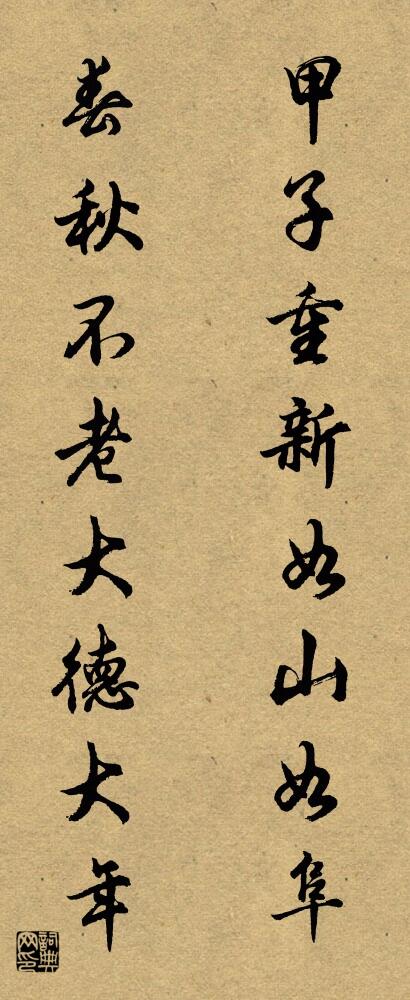 甲子重新如山如阜
春秋不老大德大年